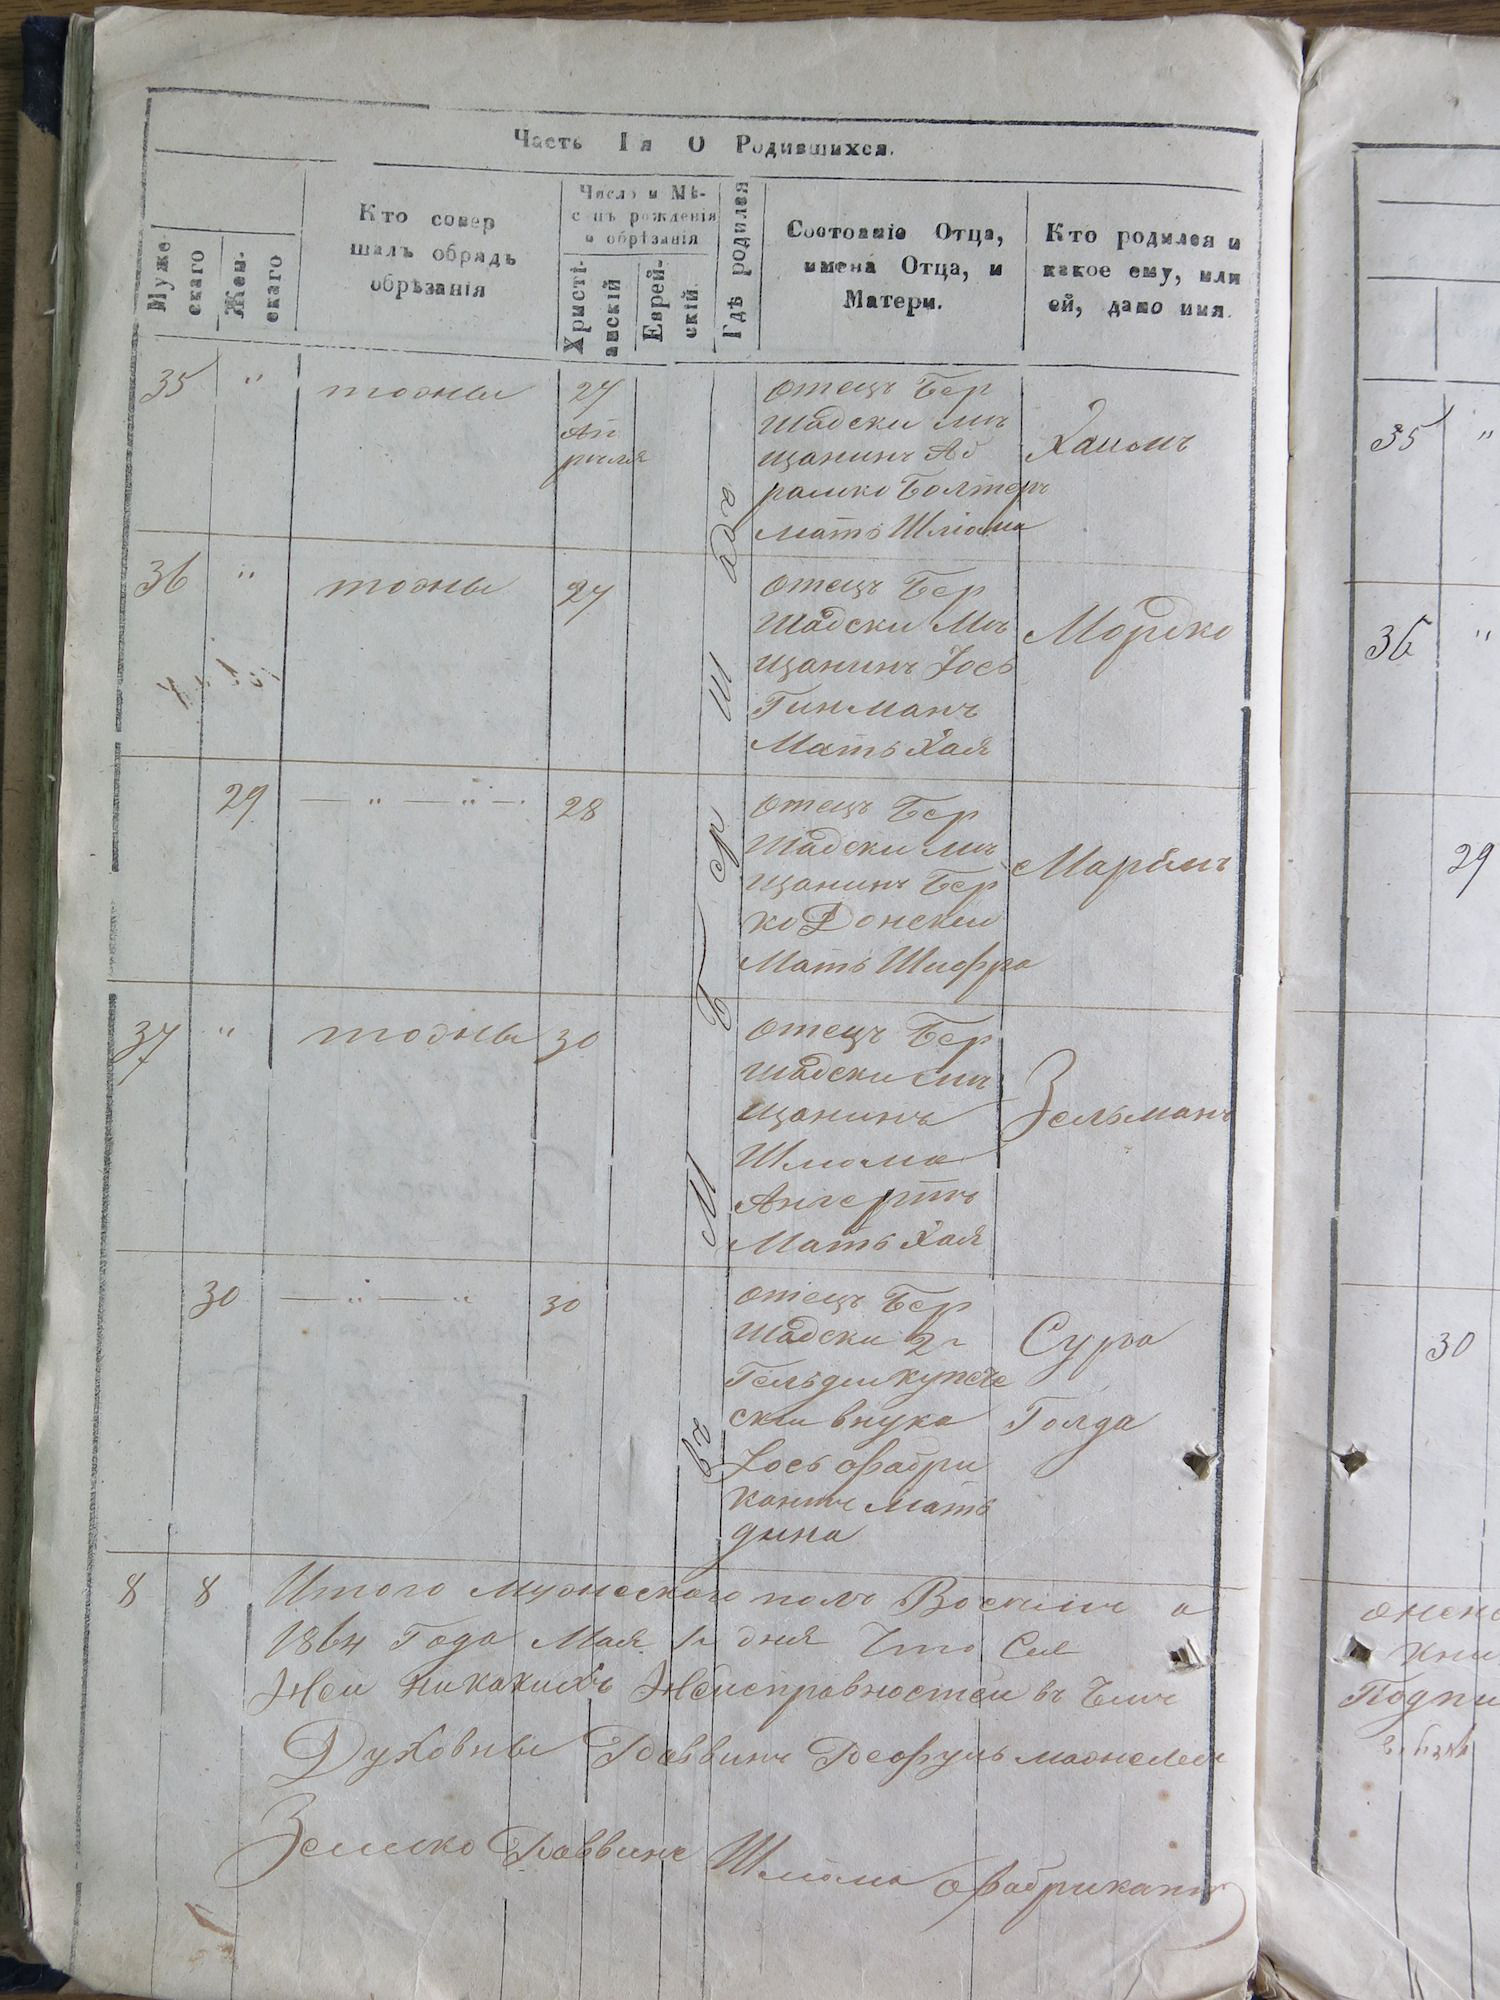 Часть Iя О Родившихся.
Муже-
скаго
Жен-
скаго
Кто совер
шалъ обрядъ
обрѣзанія
Число и Мѣ-
сяцъ рожденія
и обрѣзанія
Христі-
анскій
Еврей-
скій
Гдѣ родился
Состояніе Отца,
имена Отца, и
Матери.
Кто родился и
какое ему, или
ей, дано имя.
35 " тожны 27
Ап
риля
отецъ Бер
шадски мѣ
щанинъ Аб
рамко Болтеръ
мать Шлiома
Хаимъ
36 " тожны 27
отецъ Бер
шадски Мѣ
щанинъ Іось
Гинманъ
Мать Хая
Мордко
29 — " — " — 28
отецъ Бер
шадски мѣ
щанинъ Бер
ко Донски
Мать Шифра
Маріимъ
37 " тожны 30
отецъ Бер
шадски мѣ
щанинъ
Шлиома
Мать Хая
Зельманъ
30 — " — " 30
отецъ Бер
шадски 2й
Гельдии купече
ски внука
Іось Фабри
кантъ Мать
дина
Сура
Голда
въ М Бершадѣ
8 8 Итого мужескаго полъ Восьмъ а
1864 Года Мая 1 дня Что Сея
Ней никакихъ Неисправностей въ Чемъ
Духовны Раввинъ
Раввинъ Шлiома Фабрикантъ
35 "
36 "
29
30
Подпи